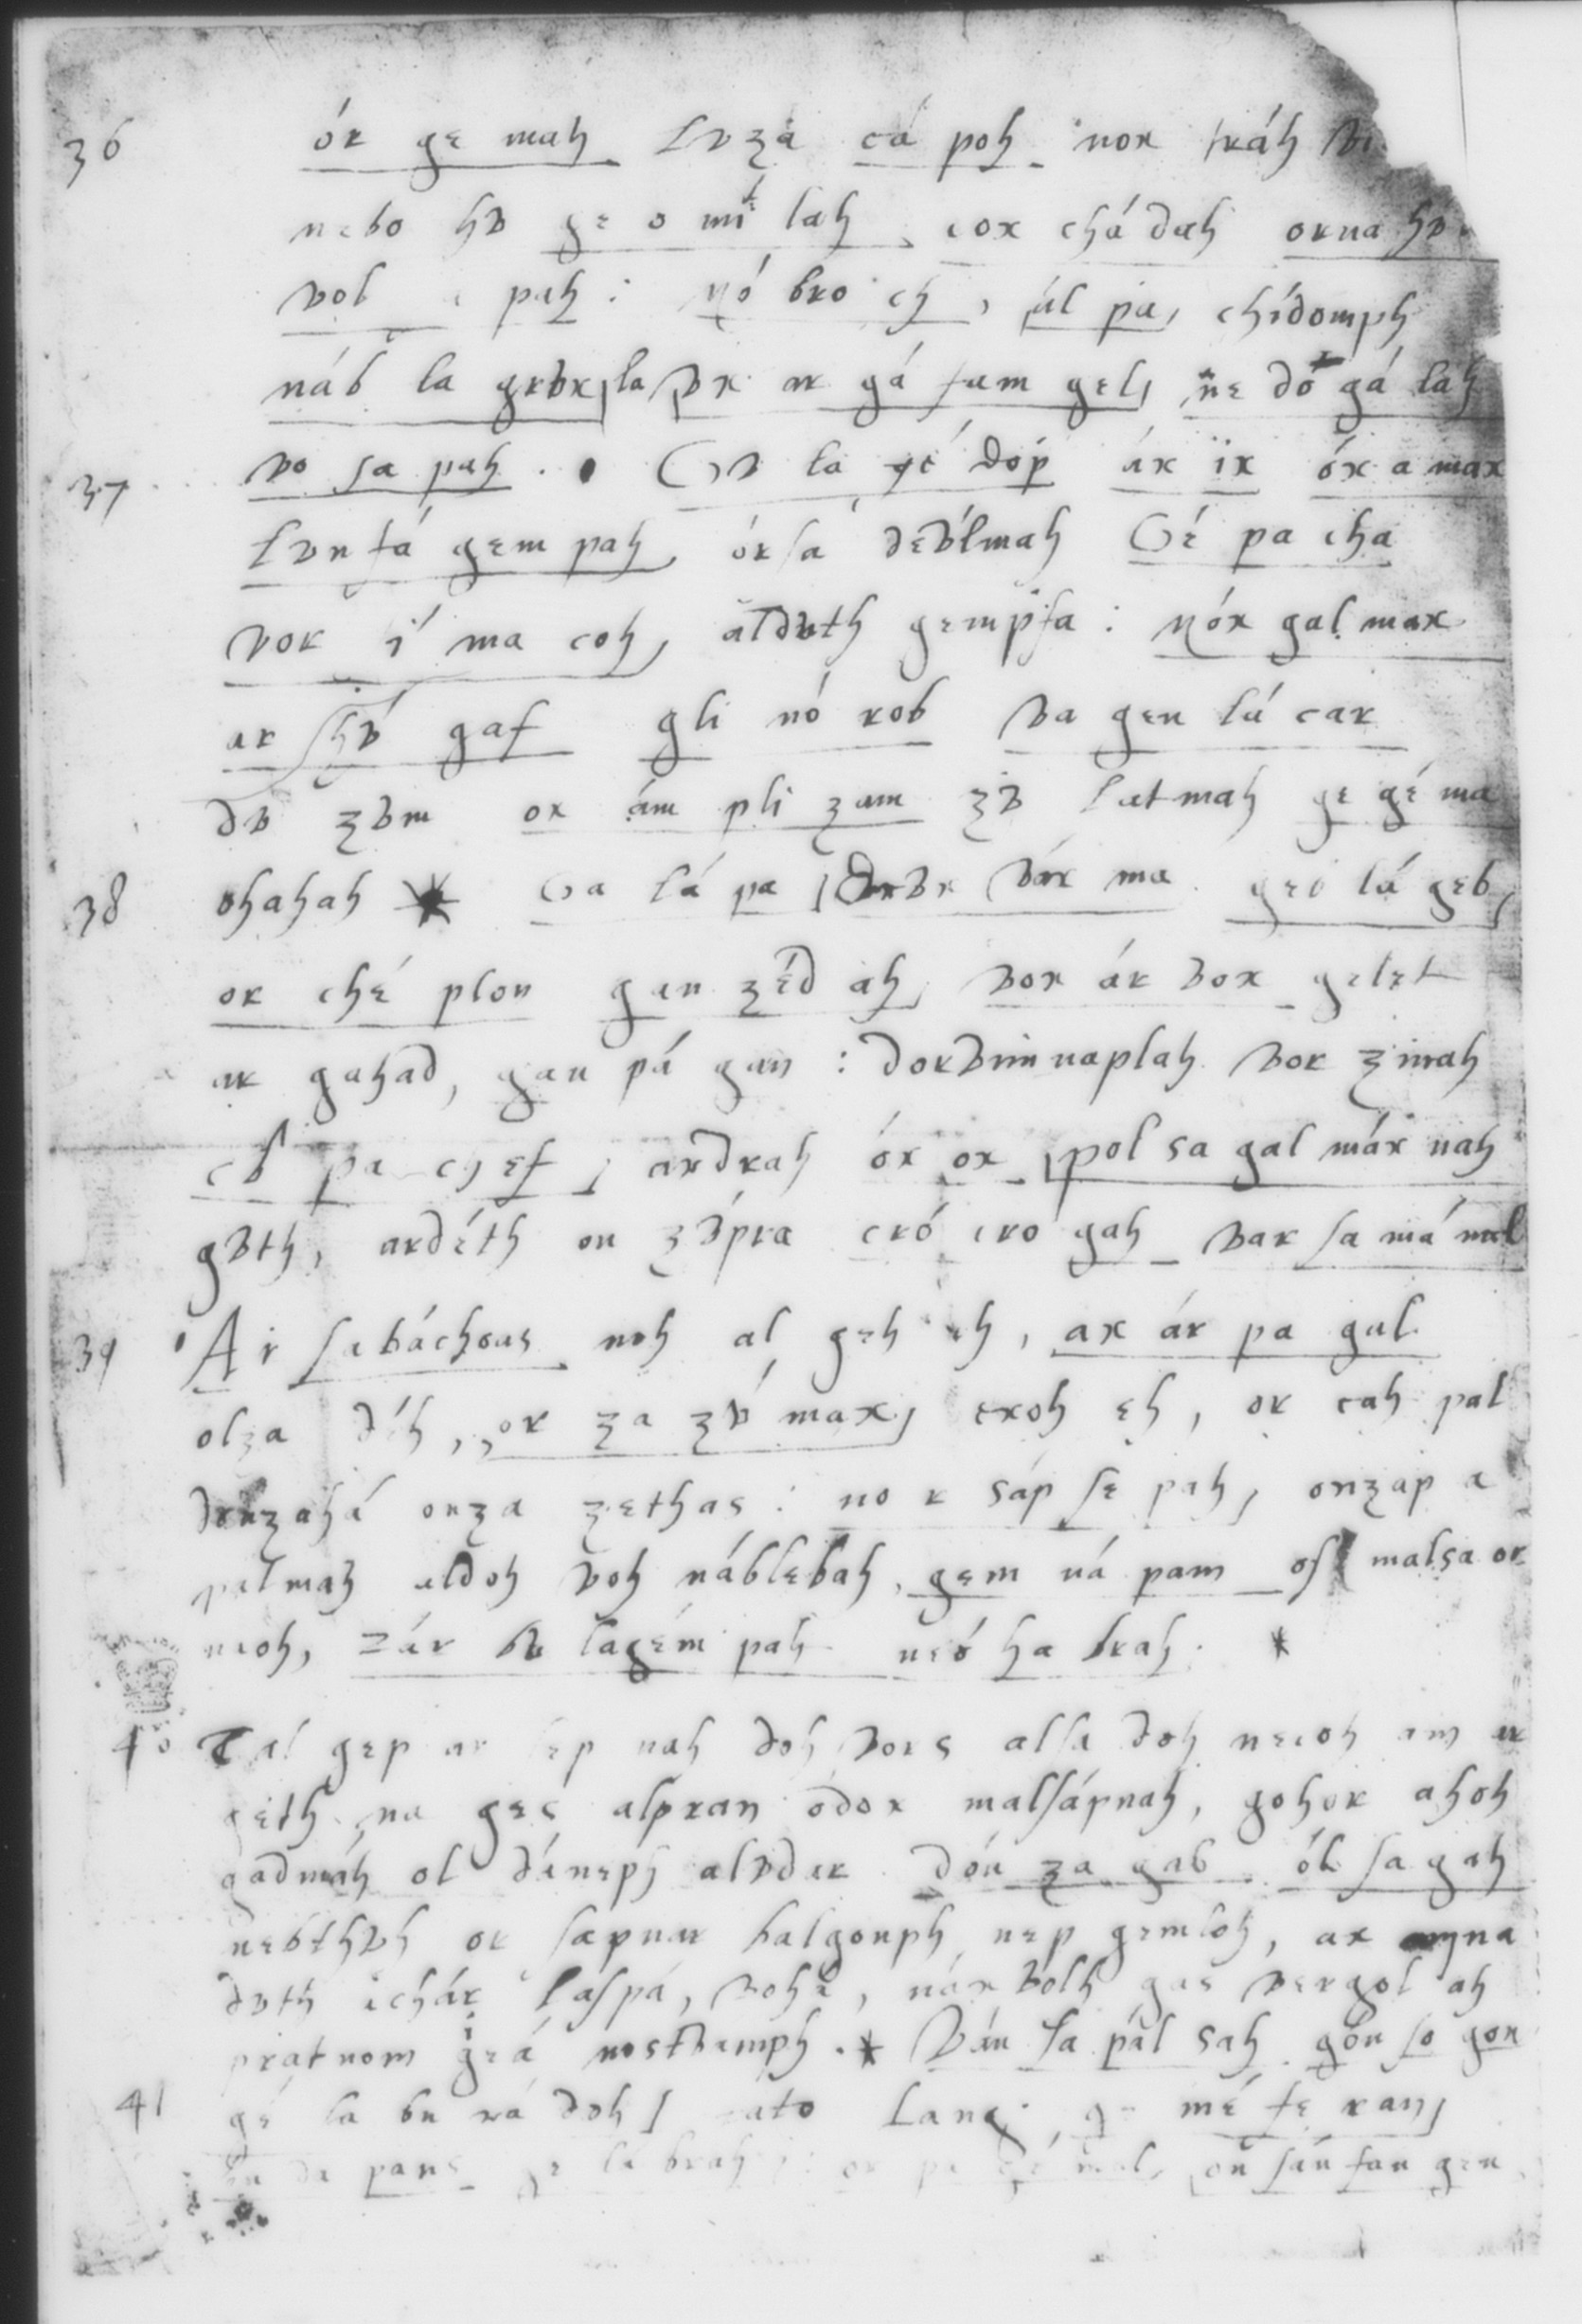 36 ór ge mah luza cá poh nox tráh
nebo hv ge o mi lah, cox chádah orna hv
vol pah: nó bro ch, úl pa, chídomph
náb la grvx, la vx ar gá tam gel, ne do gá lah
37 vo sa pah. Gv la gé dop áx ix óx a max
lvn fá gem pah, órsa devlmah Gé pa cha
vor í ma coh, aldvth gempfa: nóx gal max
ar shv gaf gli nó rob va gen lá car
dv zvm ox ám pli zam zv latmah ge gé ma
38 ohahah * Ga lá pa drvx váx ma geo lá geb,
or ché plon gan zéd ah, vox ár vox gelet
ar gahad, gan pá gan: dorvimnaplah vor zinah
cv pa chef, ardrah óx ox, pol sa gal máx nah
gvth, ardéth on zvpra cró cro gah var sa má mal
39 Ar sabáchoas noh al geh eh, ax ár pa gal
olza déh, or za zv max, exoh eh, or cah pal
donzahá onza zethas: no r sáp se pah, onzap a
palmah aldoh voh náblebah, gem ná pam os malsa or
naoh, zár bu lagém pah neó ha brah. *
40 Tal gep ar sep nah doh vors alsa doh necoh am ar
geth na ges alpran odox malsápnah, gohor ahoh
gadmáh ol dáneph alvdar dón za gab ól sa gah
nebthvh or sapnar balgonph nep gemloh, ax amna
dvth achár laspá, voha, náx volh gas vergol ah
pratnom geá nostvamph. * Ván sa pál sah gón so gon
41 gé la bu rá doh, ato lang, ge mé fe ran,
pans ge lá brah: or pa gé mal, on sán fan gen